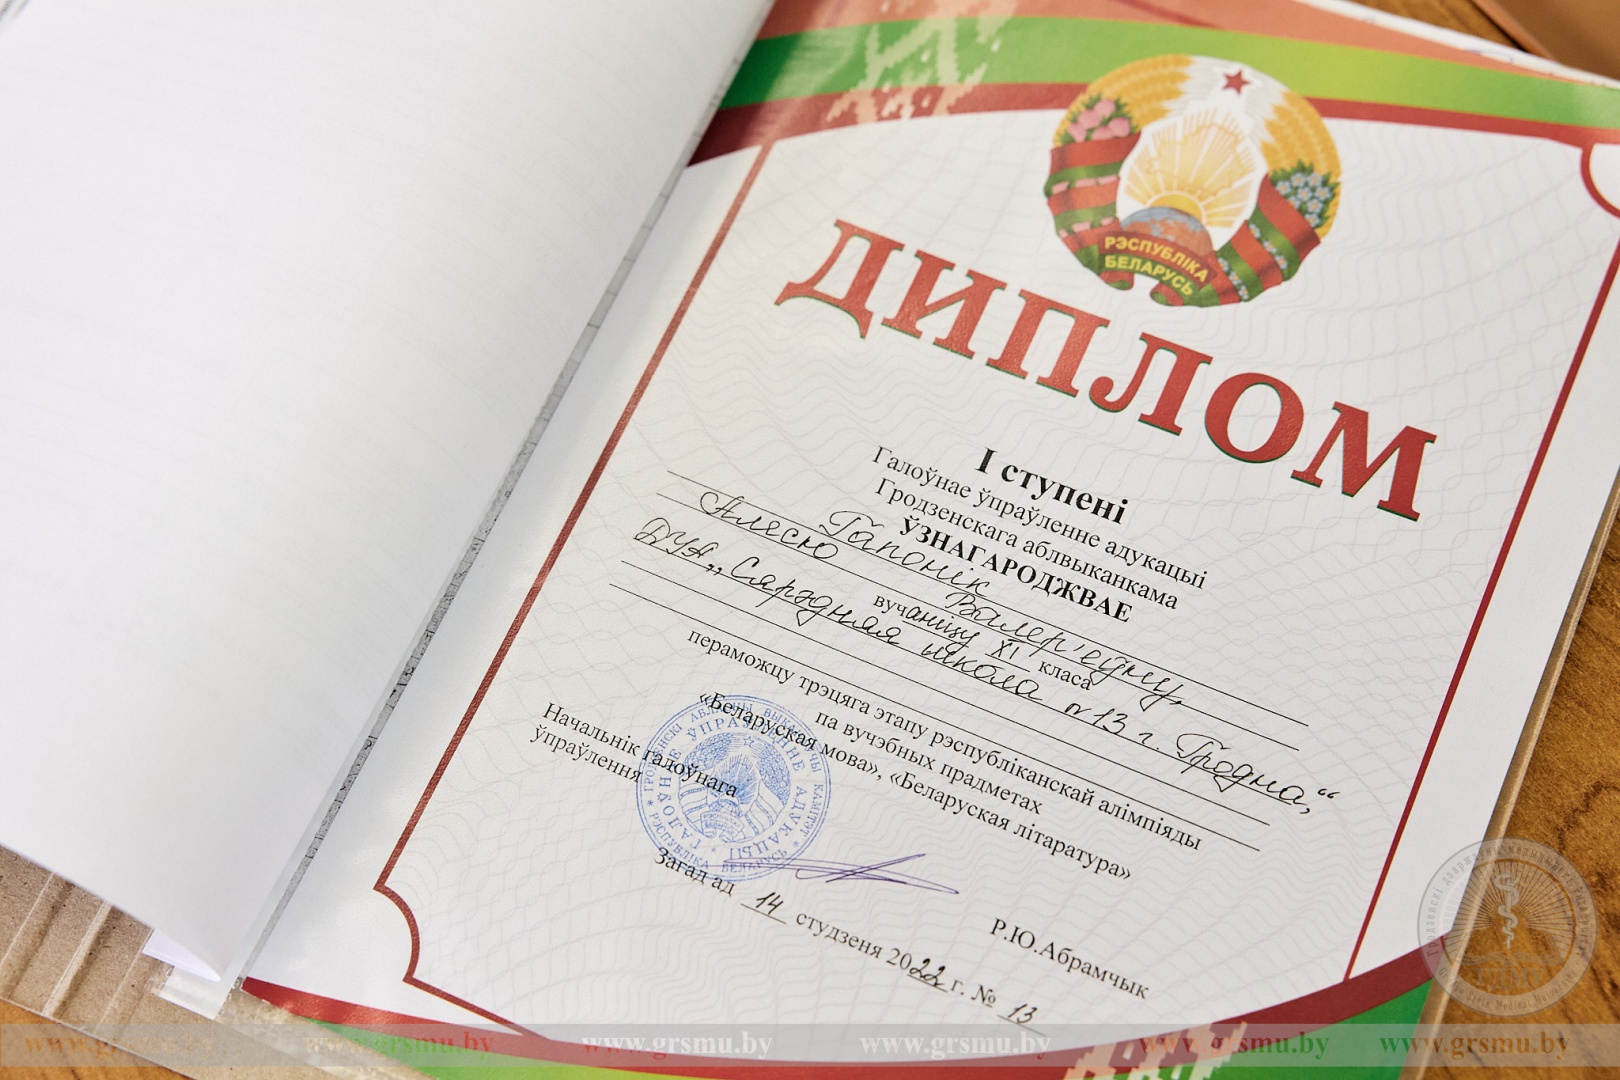 РЭСПУБЛІКА
БЕЛАРУСЬ
ДИПЛОМ
І ступені
Галоўнае ўпраўленне адукацыі
Гродзенскага аблвыканкама
ЎЗНАГАРОДЖВАЕ
Гапонік
Алесю Валер'еўну,
вучаніцу XI класа
ДУА „Сярэдняя школа №13 г. Гродна,“
пераможцу трэцяга этапу рэспубліканскай алімпіяды
па вучэбных прадметах
«Беларуская мова», «Беларуская літаратура»
Начальнік галоўнага
ўпраўлення
Р.Ю.Абрамчык
Загад ад 14 студзеня 2022 г. № 13
ГАЛОЎНАЕ ЎПРАЎЛЕННЕ АДУКАЦЫІ
РЭСПУБЛІКА БЕЛАРУСЬ
www.grsmu.by www.grsmu.by www.grsmu.by www.grsmu.by www.grsmu.by www.grsmu.by